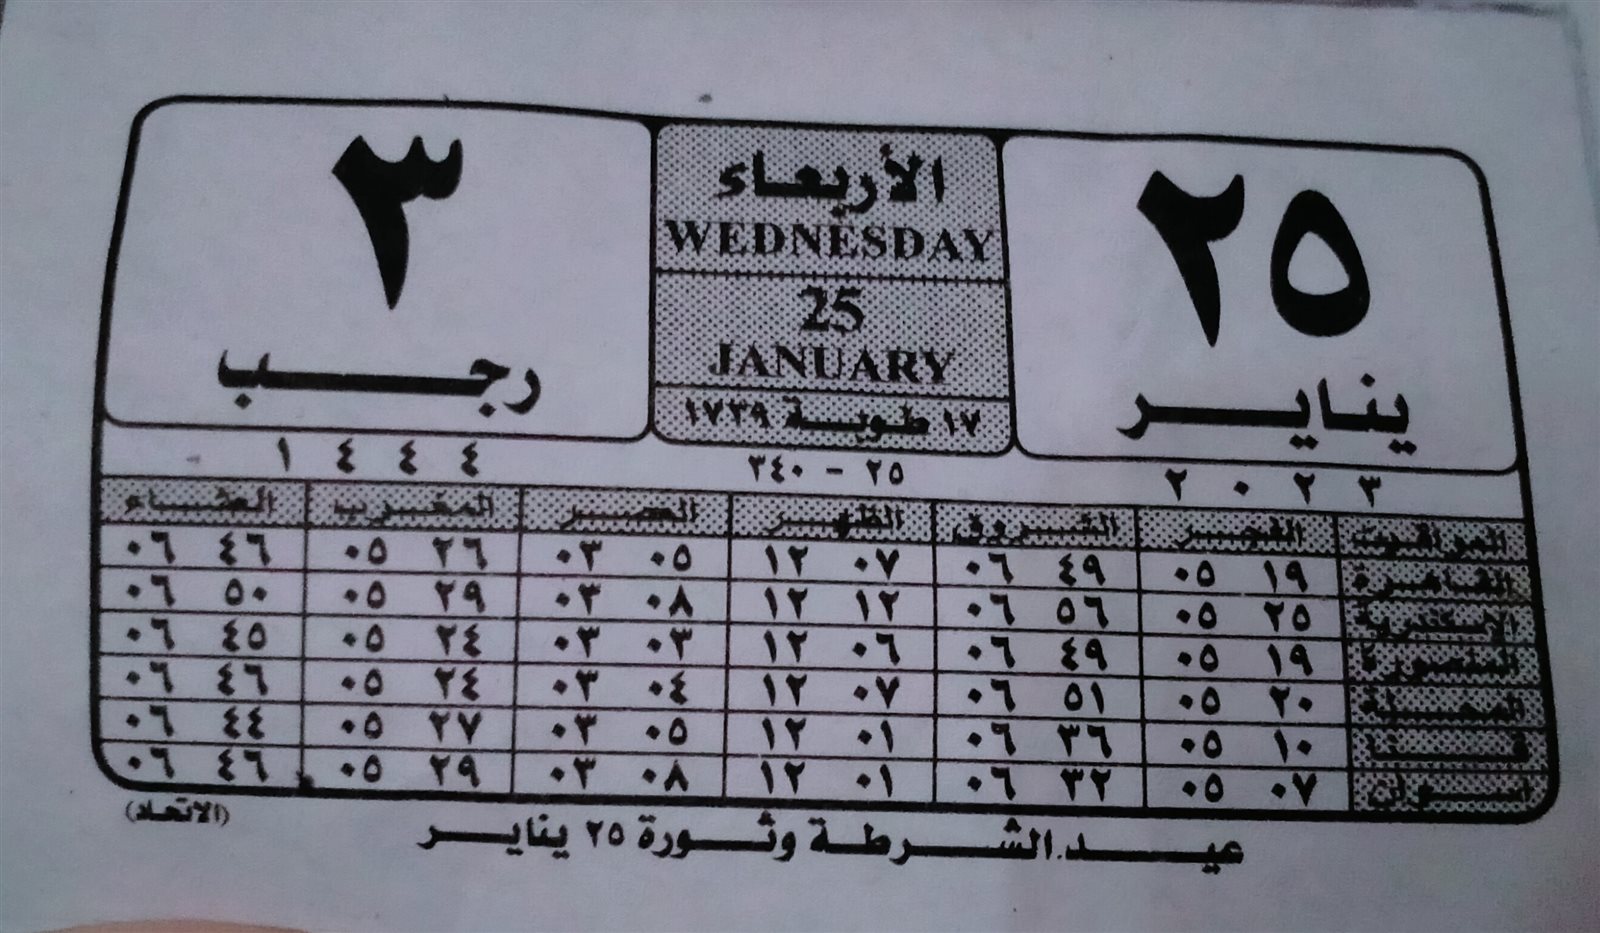 ٢٥
يناير
٢ ٠ ٢ ٣
الأربعاء
WEDNESDAY
25
JANUARY
١٧ طوبة ١٧٣٩
٢٥ - ٣٤٠
٣
رجب
١ ٤ ٤ ٤
المواقيت الفجر الشروق الظهر العصر المغرب العشاء
القاهرة ١٩ ٠٥ ٤٩ ٠٦ ٠٧ ١٢ ٠٥ ٠٣ ٢٦ ٠٥ ٤٦ ٠٦
الإسكندرية ٢٥ ٠٥ ٥٦ ٠٦ ١٢ ١٢ ٠٨ ٠٣ ٢٩ ٠٥ ٥٠ ٠٦
المنصورة ١٩ ٠٥ ٤٩ ٠٦ ٠٦ ١٢ ٠٣ ٠٣ ٢٤ ٠٥ ٤٥ ٠٦
المحلة ٢٠ ٠٥ ٥١ ٠٦ ٠٧ ١٢ ٠٤ ٠٣ ٢٤ ٠٥ ٤٦ ٠٦
قنا ١٠ ٠٥ ٣٦ ٠٦ ٠١ ١٢ ٠٥ ٠٣ ٢٧ ٠٥ ٤٤ ٠٦
أسوان ٠٧ ٠٥ ٣٢ ٠٦ ٠١ ١٢ ٠٨ ٠٣ ٢٩ ٠٥ ٤٦ ٠٦
(الاتحاد)
عيد الشرطة وثورة ٢٥ يناير